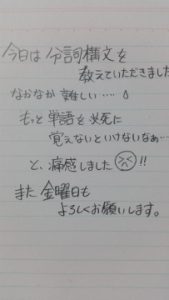 今日は分詞構文を
教えていただきました
なかなか難しい……
もっと単語を必死に
覚えないといけないなぁ…
と、痛感しました!!
また金曜日も
よろしくお願いします。